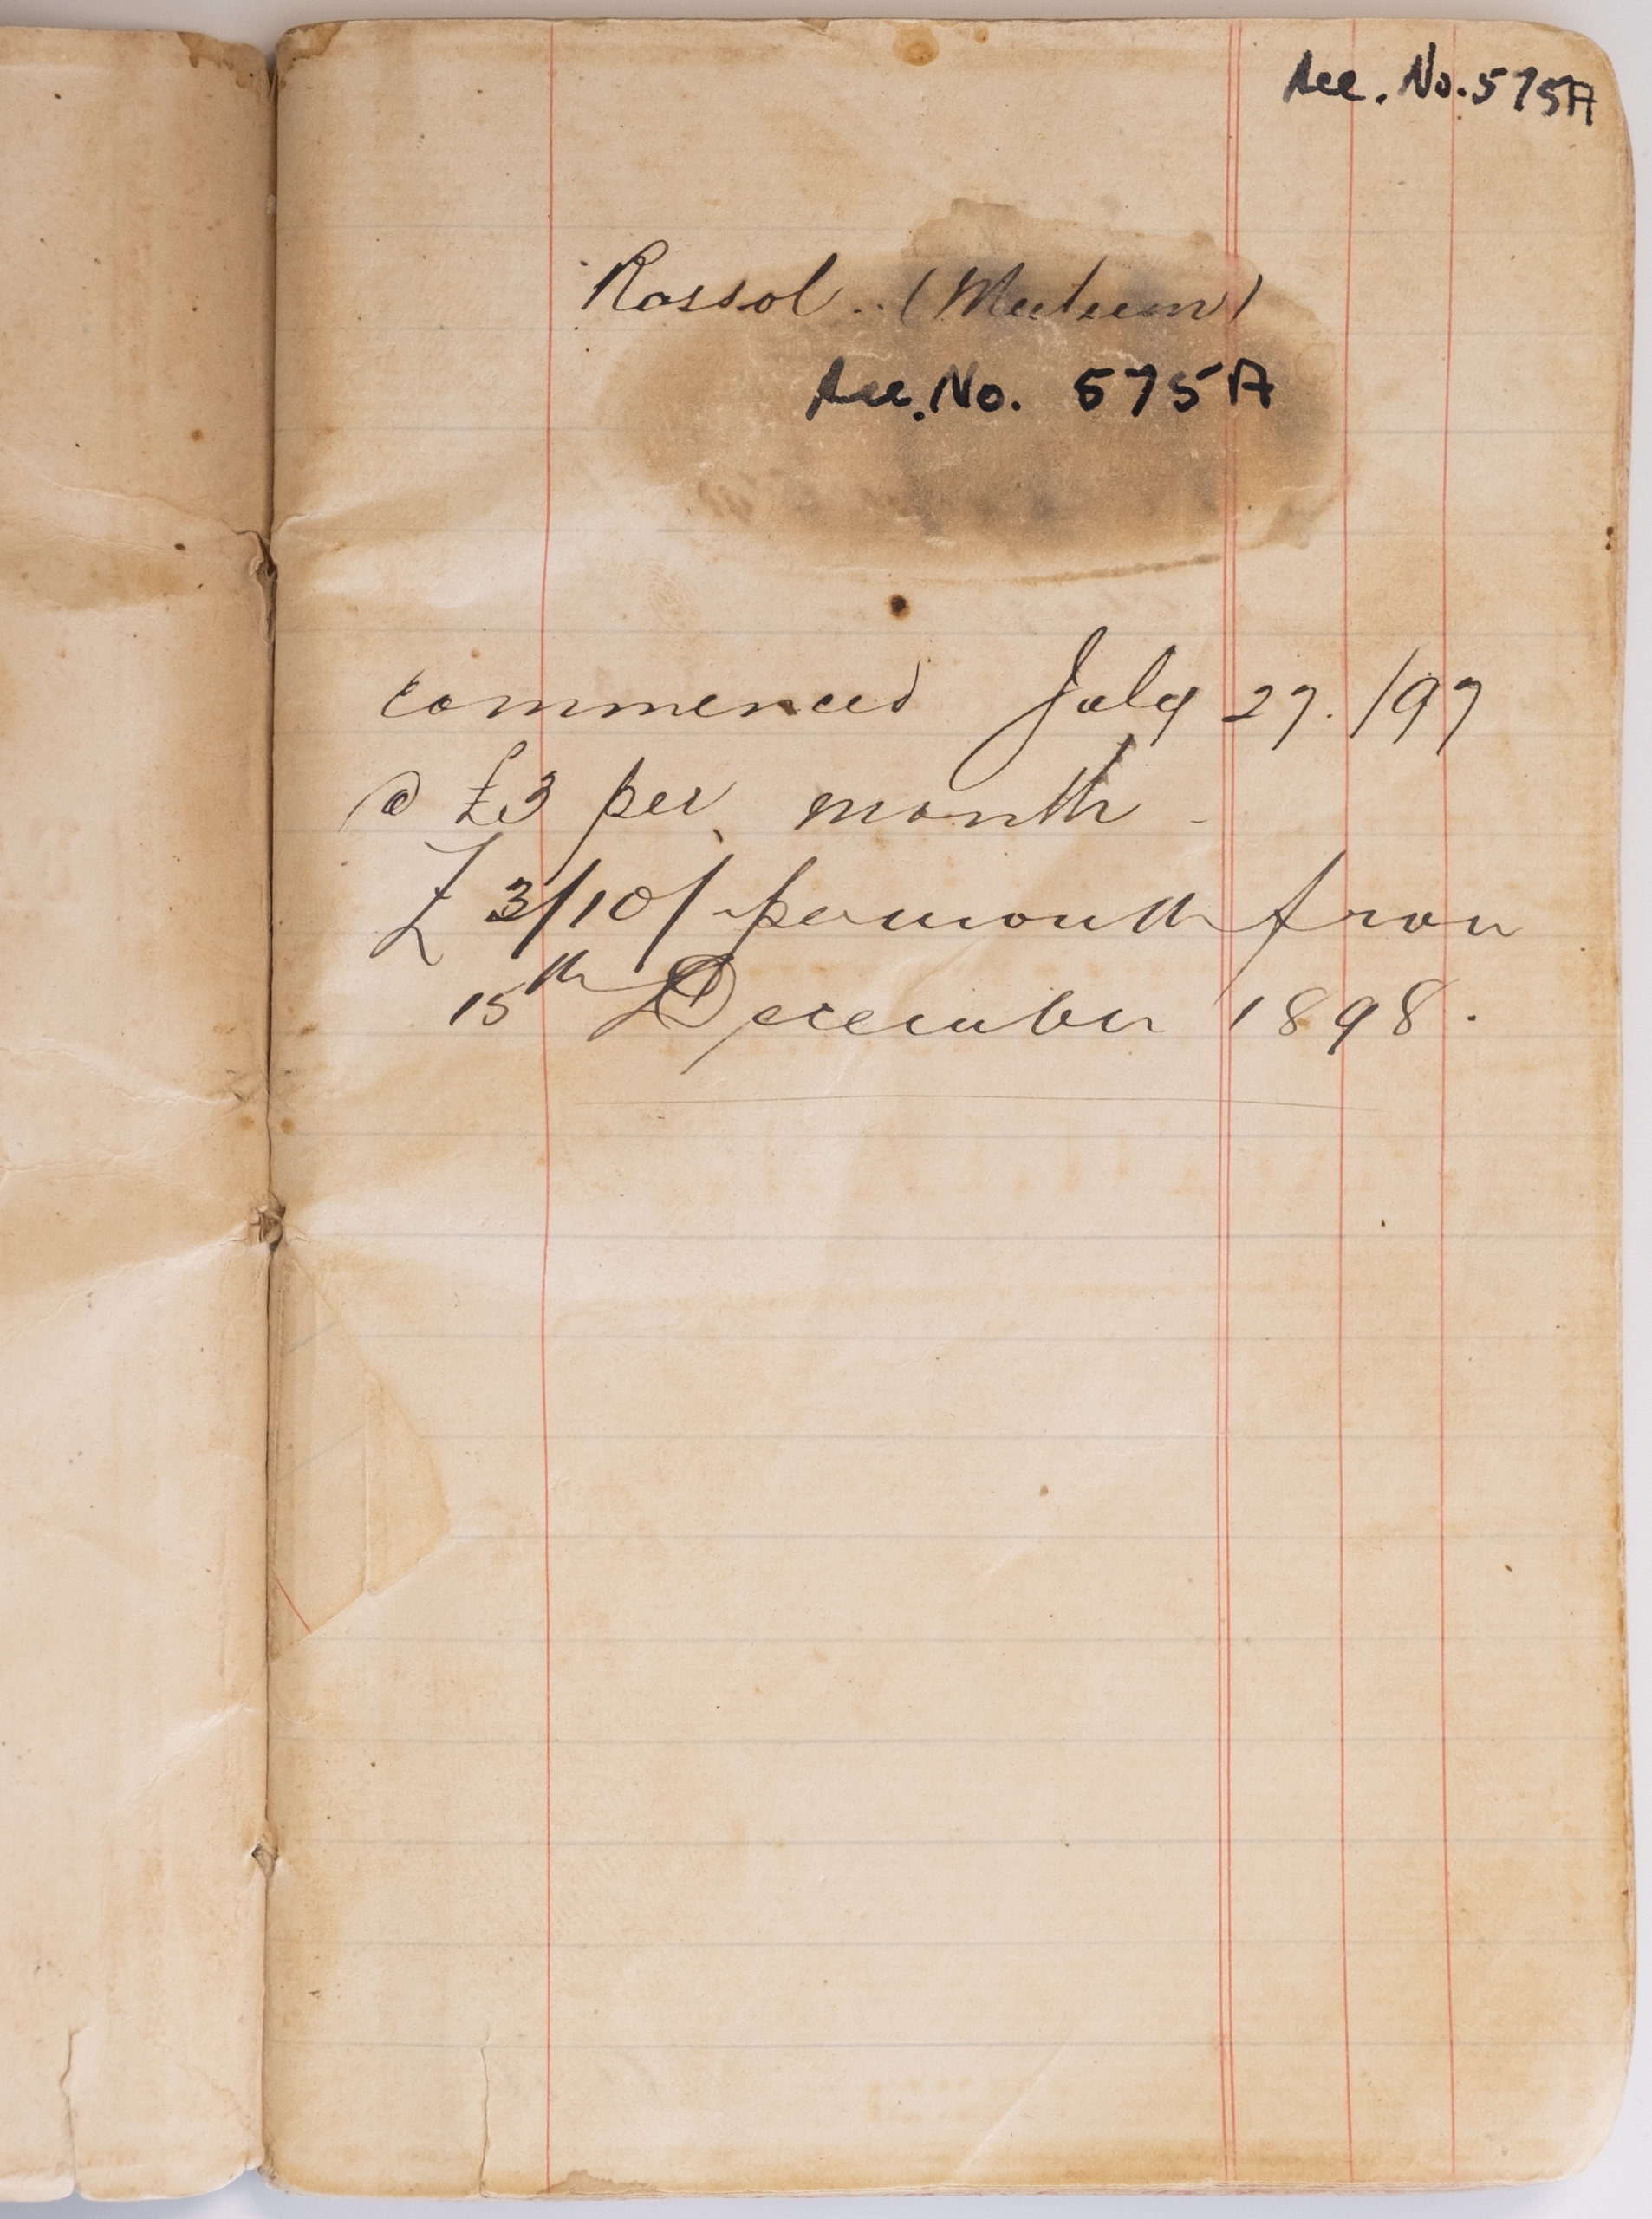 Acc. No. 575A
Rossol .. (Muteum)
Acc. No. 575A
commenced July 27. /97
@ £3 per month -
£ 3/10/- per month from
15th December 1898.